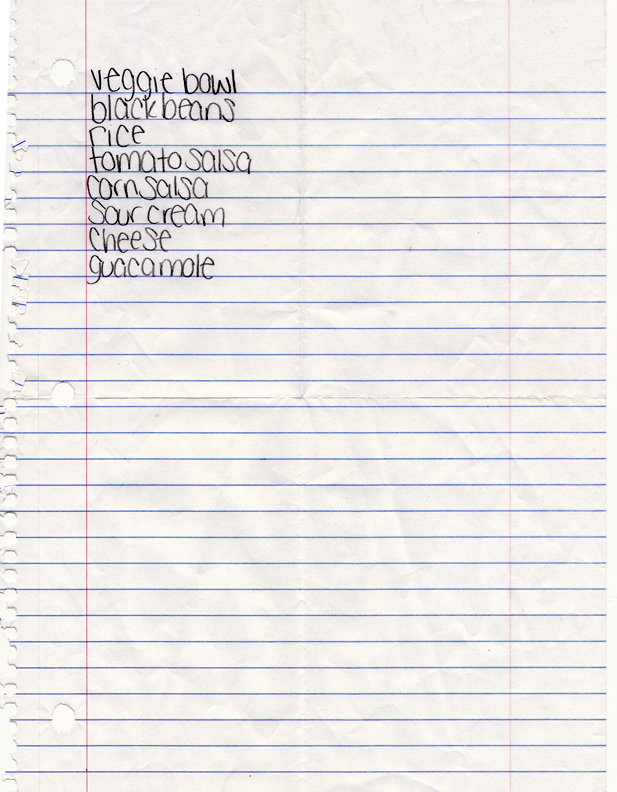 veggie bowl
black beans
rice
tomato salsa
corn salsa
sour cream
cheese
guacamole